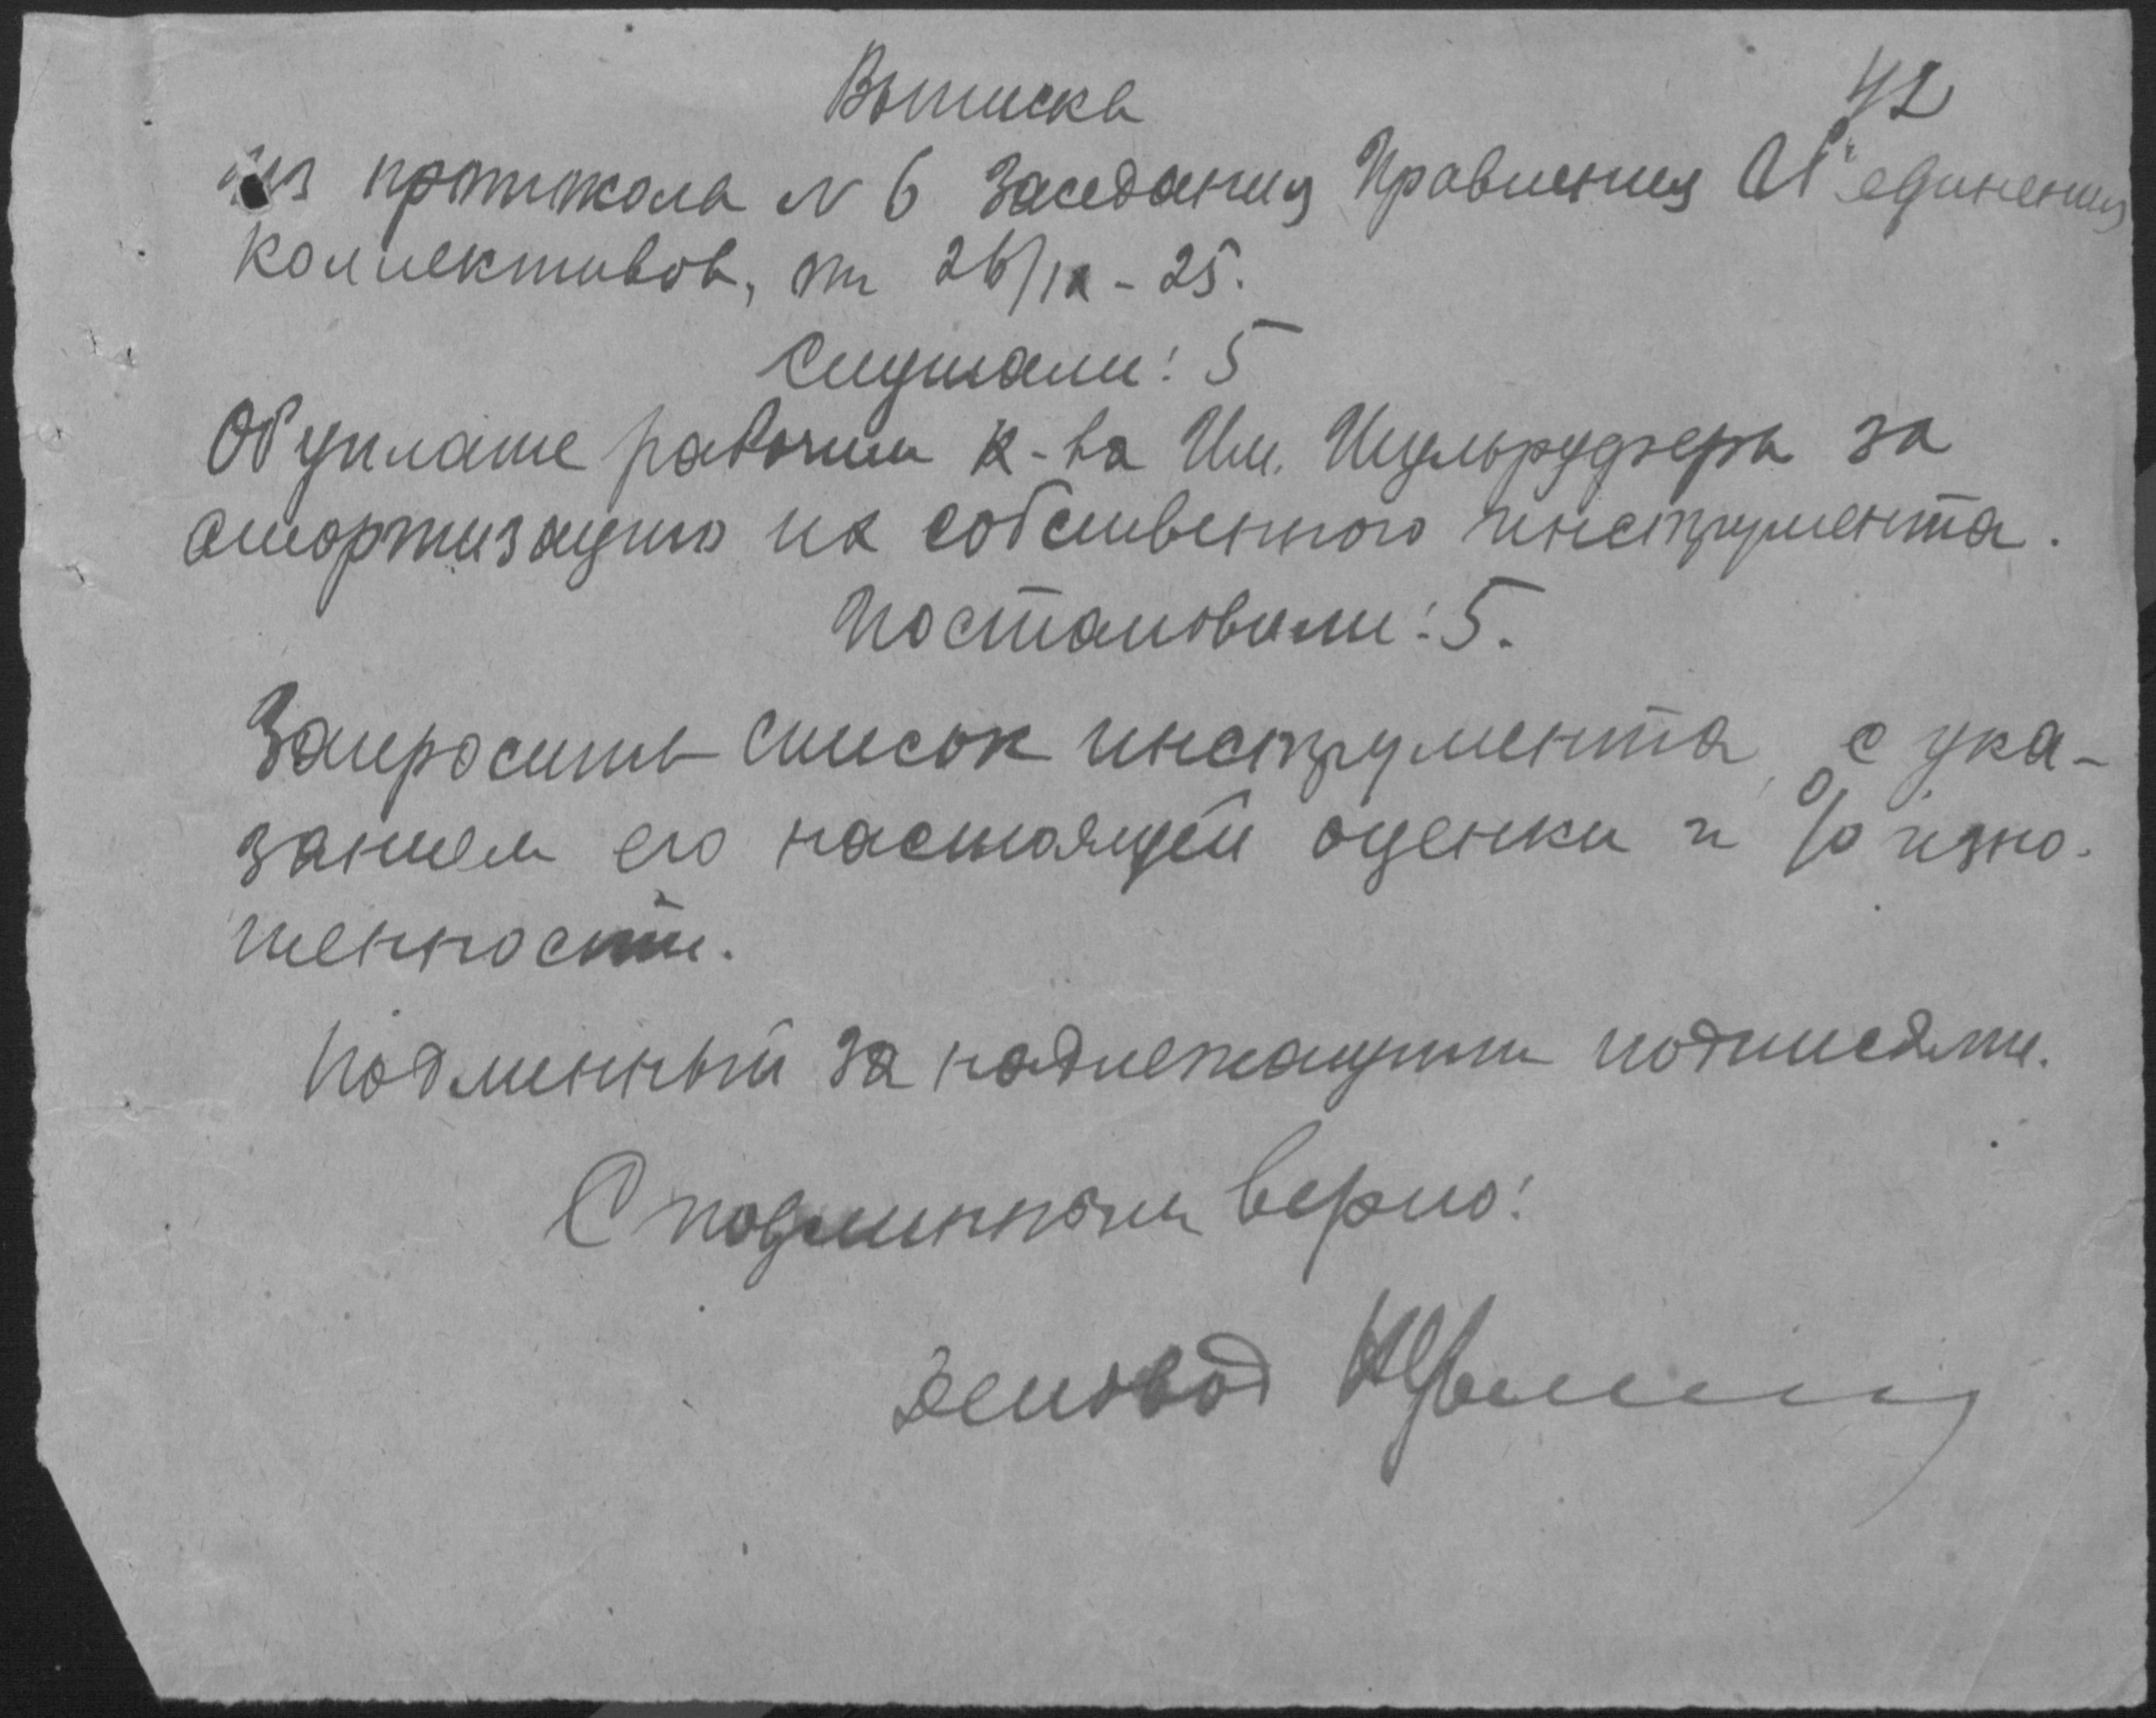 42
Выписка
из протокола № 6 Заседания Правления Об"единения
Коллективов, от 26/IX - 25.
Слушали: 5
Об уплате рабочим К-ва Им. за
амортизацию их собственного инструмента.
Постановили: 5.
Запросить список инструмента, с ука-
занием его настоящей оценки и % изно-
шенности.
Подлинный за надлежащими подписями.
С подлинным верно:
Деловод